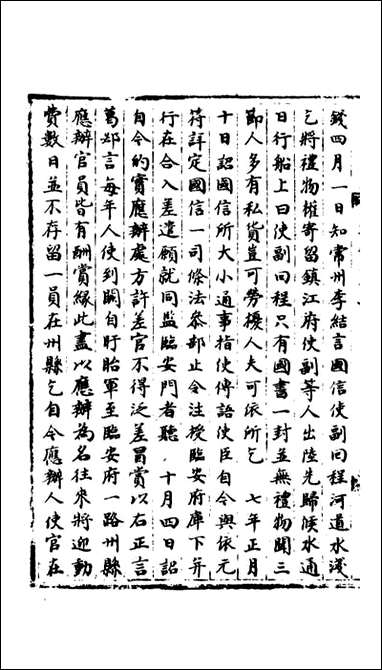 錢四月一日知常州李結言國信使副回程河道水淺
乞將禮物權寄留鎮江府使副等人出陸先歸候水通
日行船上曰使副回程只有國書一封並無禮物聞三
節人多有私貨豈可勞擾人夫可依所乞　七年正月
十日詔國信所大小通事指使傳語使臣自今與依元
符詳定國信一司條法參部止令注授臨安府庫下幷
行在合入差遣願就同監臨安門者聽　十月四日詔
自今的實應辦處方許差官不得泛差冒賞以右正言
葛邲言每年人使到闕自盱眙軍至臨安府一路州縣
應辦官員皆有酬賞緣此盡以應辦為名往來將迎動
費數日並不存留一員在州縣乞自今應辦人使官在